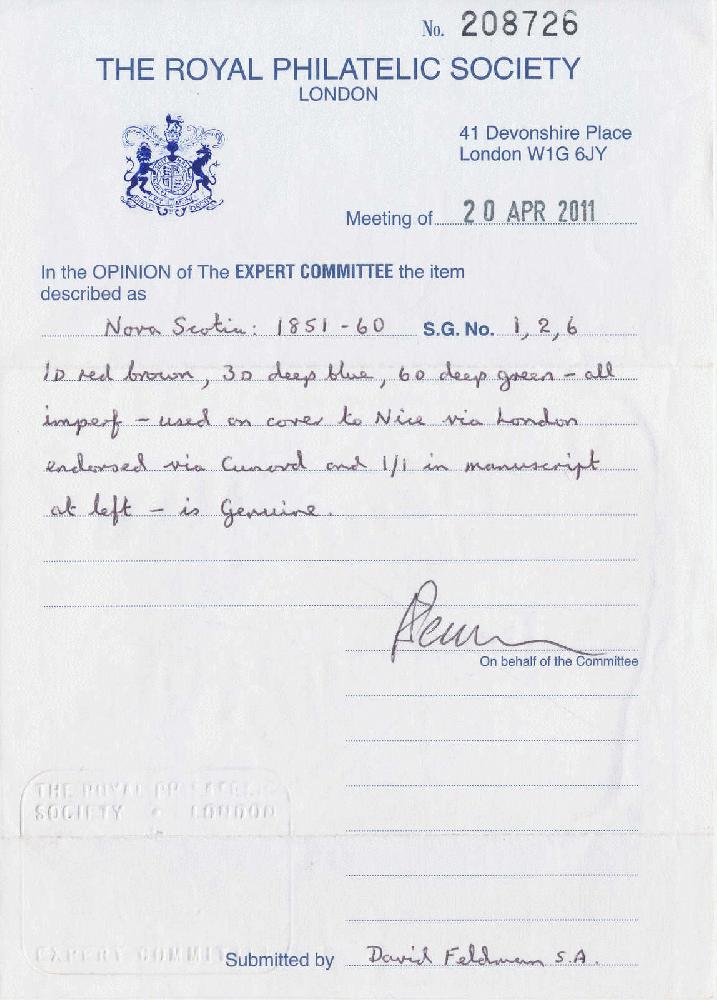 No. 208726
THE ROYAL PHILATELIC SOCIETY
LONDON
41 Devonshire Place
London W1G 6JY
Meeting of 20 APR 2011
In the OPINION of The EXPERT COMMITTEE the item
described as
Nova Scotia: 1851-60 S.G. No. 1, 2, 6
1D red brown, 3D deep blue, 6D deep green - all
imperf - used on cover to Nice via London
endorsed via Cunard and 1/1 in manuscript
at left - is Genuine.
On behalf of the Committee
THE ROYAL PHILATELIC
SOCIETY • LONDON
EXPERT COMMITTEE
Submitted by David Feldman S.A.